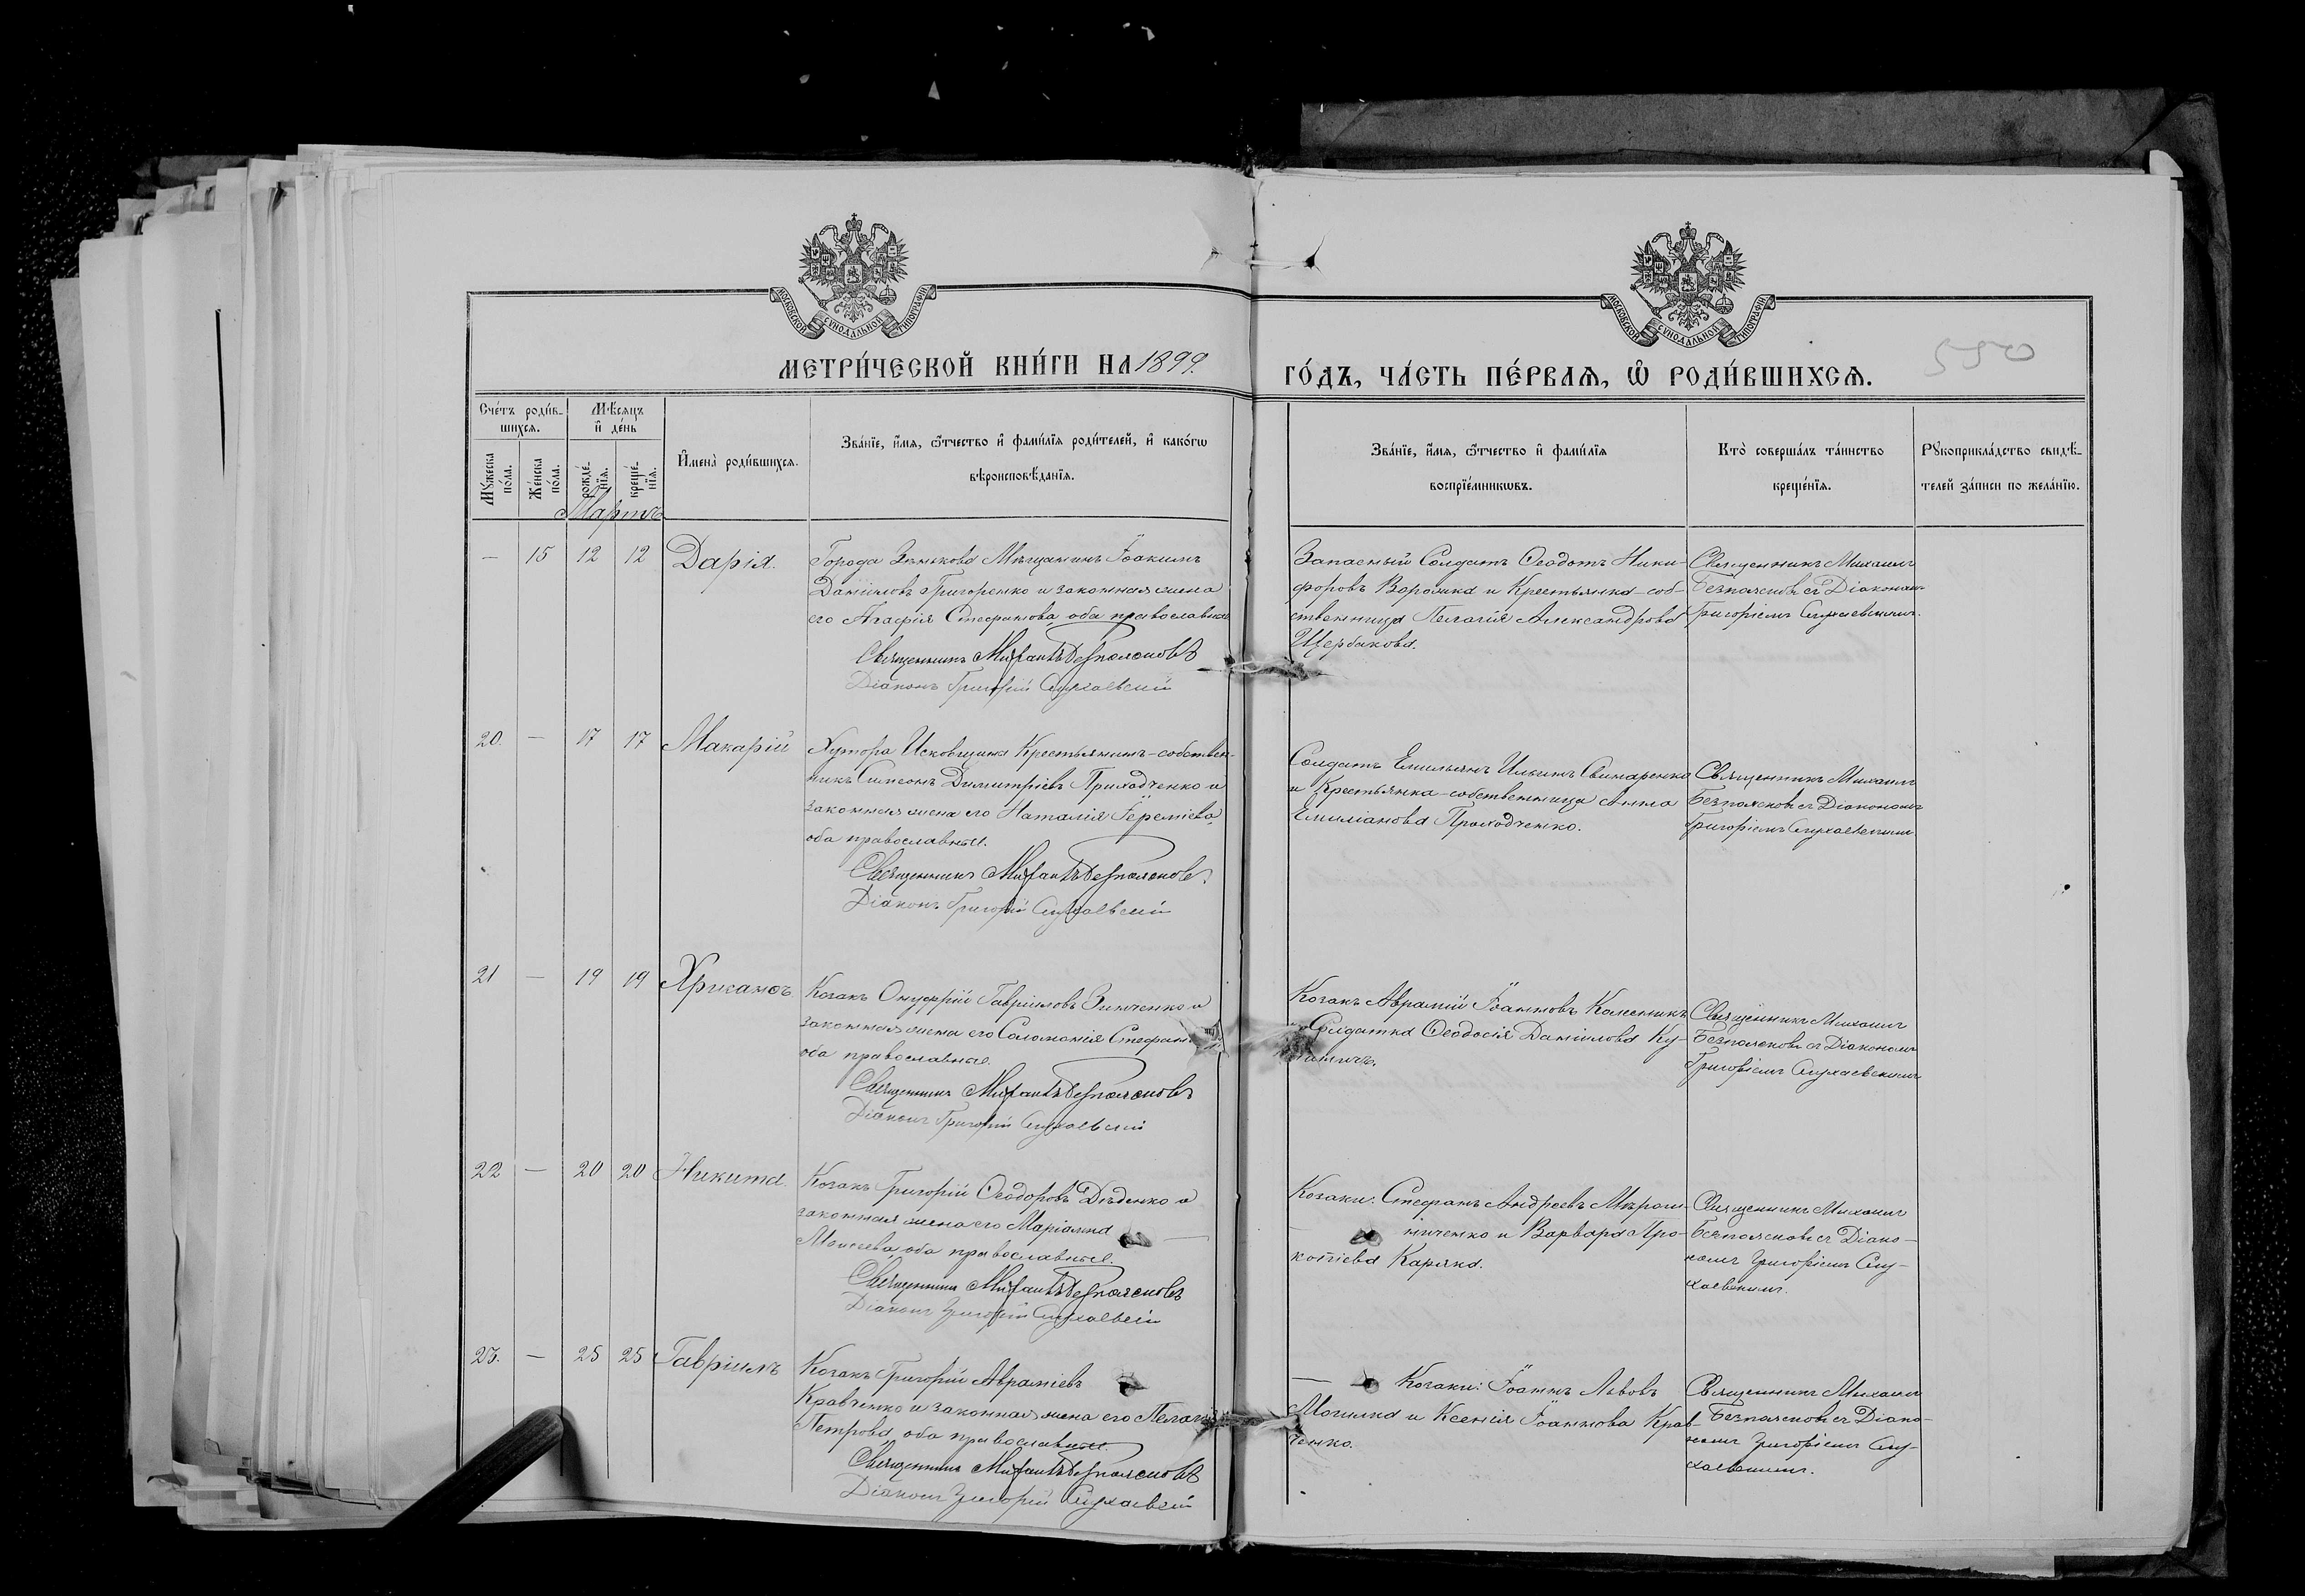 МОСКОВСКОЙ СѴНОДАЛЬНОЙ ТИПОГРАФІИ
МОСКОВСКОЙ СѴНОДАЛЬНОЙ ТИПОГРАФІИ
МЕТРИ́ЧЕСКОЙ КНИ́ГИ НА 1899.
ГО́ДЪ, ЧА́СТЬ ПЕ́РВАЯ, Ѿ РОДИ́ВШИХСЯ.
550
Сче́тъ роди́в-
шихся.
Мѣ́сяцъ
и҆ де́нь
Мꙋ́жеска
по́ла.
Же́нска
по́ла.
рожде́-
нїя.
креще́-
нїя.
И҆мена̀ роди́вшихся.
Зва́нїе, и҆́мя, ѻ҆́тчество и҆ фами́лїя роди́телей, и҆ како́гѡ
вѣроисповѣ́данїя.
Зва́нїе, и҆́мя, ѻ҆́тчество и҆ фами́лїя
воспрїе́мникѡвъ.
Кто̀ соверша́лъ та́инство
креще́нїя.
Рꙋкоприкла́дство свидѣ́-
телей за́писи по жела́нїю.
Мартъ
— 15 12 12 Дарія.
Города Зѣнькова Мѣщанинъ Іоакимъ
Даніиловъ Григоренко и законная жена
его Агафія Стефанова оба православные
Священникъ Михаилъ Безпаясковъ
Діаконъ Григорій Слухаевскій
Запасный Солдатъ Ѳеодотъ Ники-
форовъ Воронка и Крестьянка-соб-
ственница Пелагія Александрова
Щербакова.
Священникъ Михаилъ
Безпаясковъ съ Діакономъ
Григоріемъ Слухаевскимъ.
20. — 17 17 Макарій
Хутора Исковщина Крестьянинъ-собствен-
никъ Симеонъ Димитріевъ Приходченко и
законная жена его Наталія Іереміева,
оба православные.
Священникъ Михаилъ Безпаясковъ.
Діаконъ Григорій Слухаевскій
Солдатъ Емильянъ Ильинъ Свинаренко
и Крестьянка-собственница Анна
Емиліанова Приходченко.
Священникъ Михаилъ
Безпаясковъ съ Діакономъ
Григоріемъ Слухаевскимъ
21 — 19 19 Хрисанѳъ
Козакъ Онуфрій Гавріиловъ Зинченко и
законная жена его Соломонія Стефан
оба православные.
Священникъ Михаилъ Безпаясковъ
Діаконъ Григорій Слухаевскій
Козакъ Аврамій Іоанновъ Колесникъ
Солдатка Ѳеодосія Даніилова Ку-
Священникъ Михаилъ
Безпаясковъ съ Діакономъ
Григоріемъ Слухаевскимъ
22 — 20 20 Никита.
Козакъ Григорій Ѳеодоровъ Дѣденко и
законная жена его Маріанна —
Моисеева, оба православные.
Священникъ Михаилъ Безпаясковъ
Діаконъ Григорій Слухаевскій
Козаки: Стефанъ Андреевъ Мирош-
— ниченко и Варвара Про-
копіева Каряка.
Священникъ Михаилъ
Безпаясковъ съ Діако-
номъ Григоріемъ Слу-
хаевскимъ.
23. — 25 25 Гавріилъ
Козакъ Григорій Аврамiевъ
Кравченко и законная жена его Пелагія
Петрова, оба православные.
Священникъ Михаилъ Безпаясковъ
Діаконъ Григорій Слухаевскій
— Козаки: Іоаннъ Львовъ
Могилка и Ксенія Іоаннова Крав-
ченко.
Священникъ Михаилъ
Безпаясковъ съ Діако-
номъ Григоріемъ Слу-
хаевскимъ.